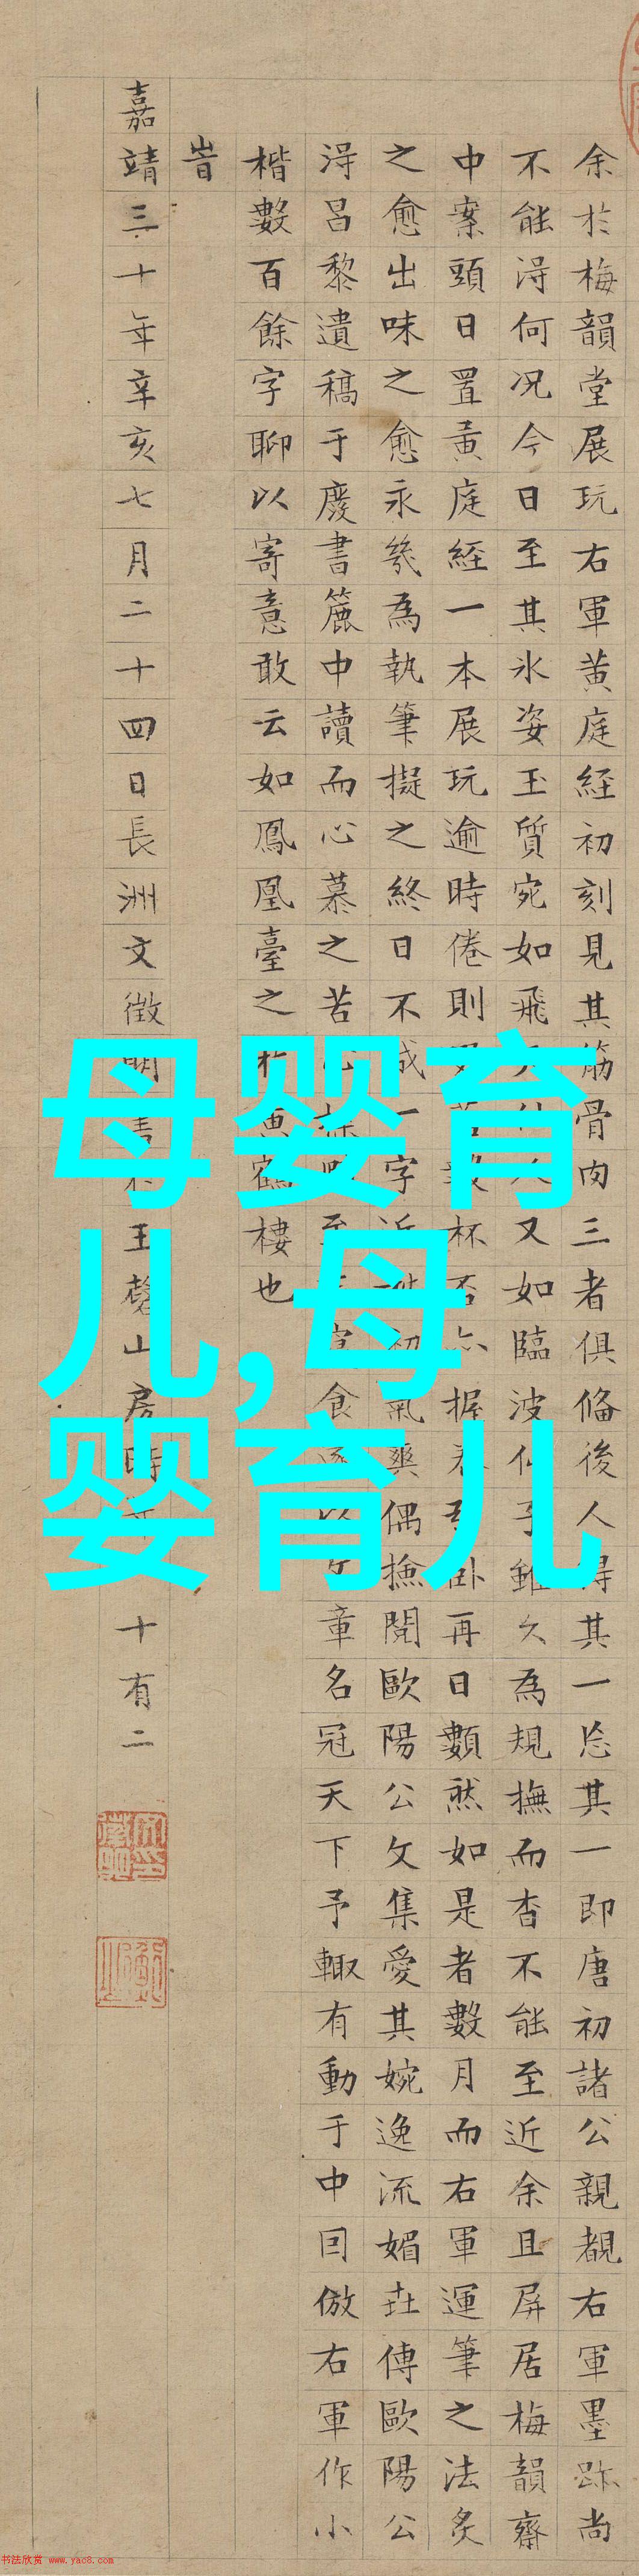 余於梅韻堂展玩右軍黄庭経初刻見其筋骨肉三者俱俻後人得其一忘其一即唐初諸公親覩右軍墨跡尚
不能淂何况今日至其氷姿玉質宛如飛又如臨波雖久為規撫而杳不能至近余且屏居梅韻齋
中案頭日置黄庭經一本展玩逾時倦則杯握卧再日數然如是者數月而右軍運筆之法炙
之愈出味之愈永幾為執筆擬之終日不成一字近初氣爽偶撿閲歐陽公文集愛其婉逸流媚每傳歐陽公
淂吕黎遺稿于廢書簏中讀而心慕之苦至食以章名冠天下予輙有動于中囙倣右軍作小
楷數百餘字聊以寄意敢云如鳳凰臺之於黄鶴樓也
旹
嘉靖三十年辛亥七月二十四日長洲文徴明書於玉磬山房時年十有二
母婴育
儿,母
婴育儿
书法欣赏 www.yac8.com